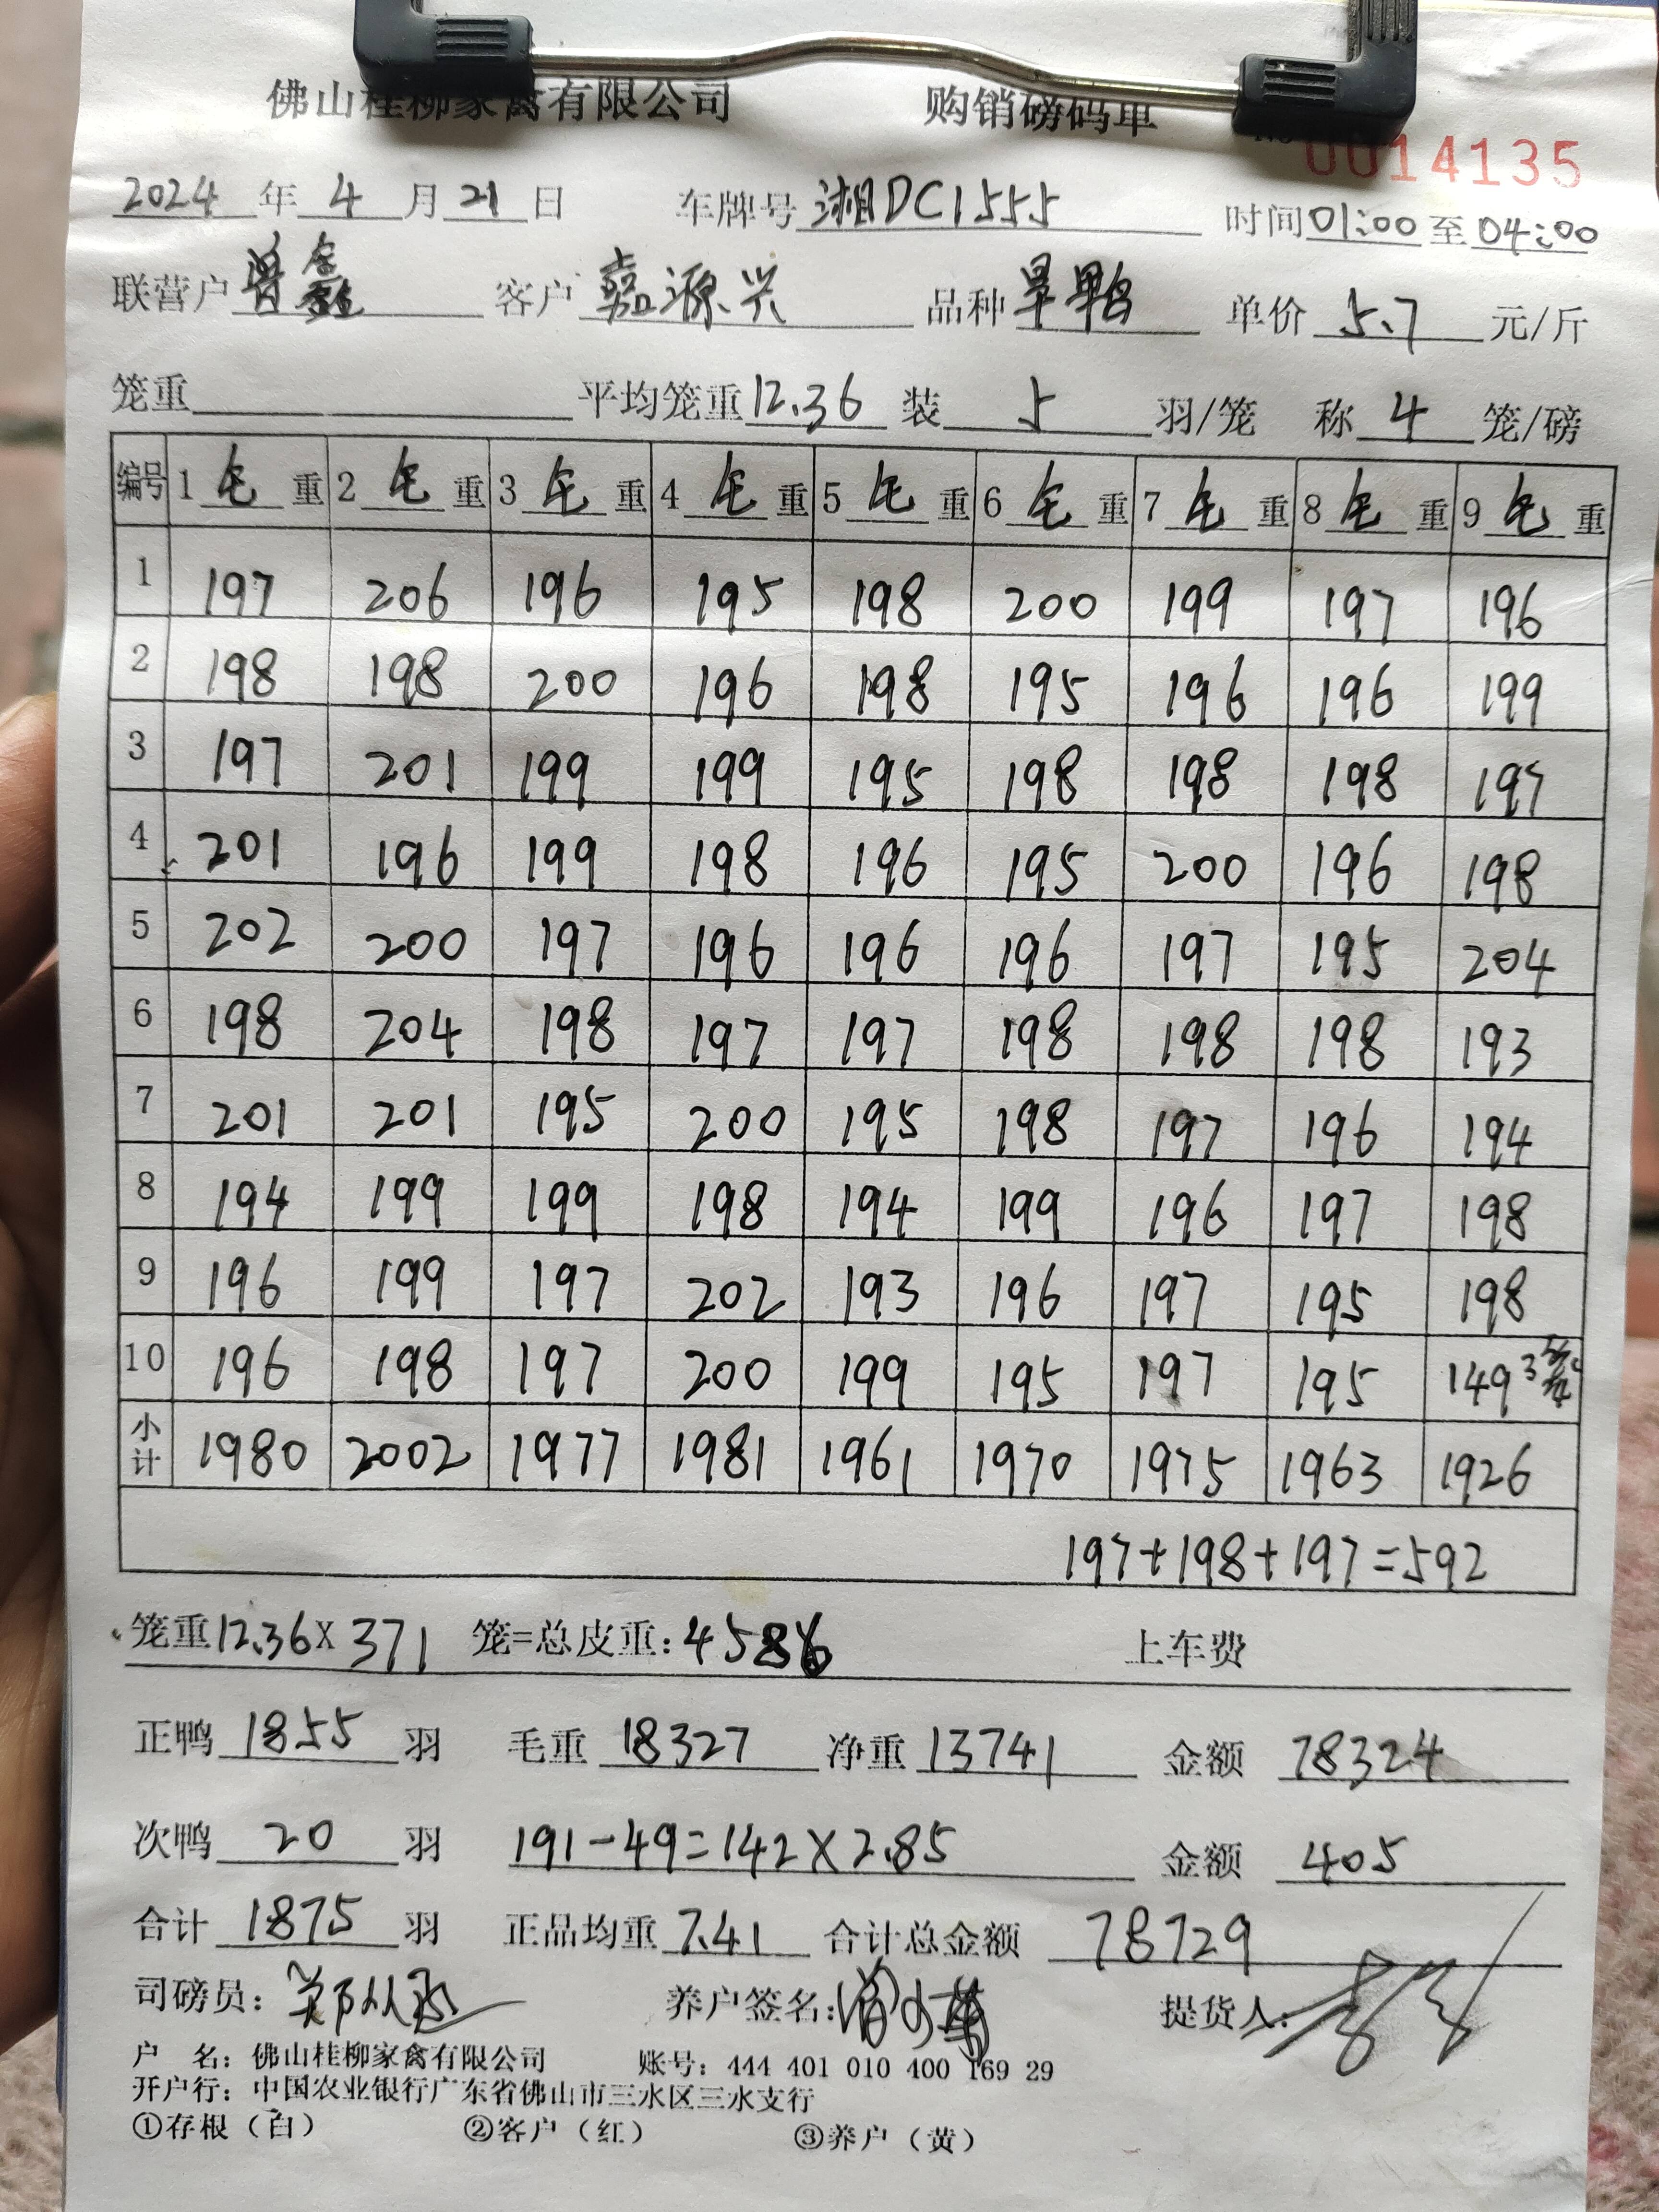 佛山桂柳家禽有限公司 购销磅码单
No 0014135
2024年4月21日 车牌号湘DC1555 时间01:00至04:00
联营户曾鑫 客户嘉源兴 品种旱鸭 单价5.7元/斤
笼重 平均笼重12.36 装5羽/笼 称4笼/磅
编号 1毛重 2毛重 3毛重 4毛重 5毛重 6毛重 7毛重 8毛重 9毛重
1 197 206 196 195 198 200 199 197 196
2 198 198 200 196 198 195 196 196 199
3 197 201 199 199 195 198 198 198 197
4 201 196 199 198 196 195 200 196 198
5 202 200 197 196 196 196 197 195 204
6 198 204 198 197 197 198 198 198 193
7 201 201 195 200 195 198 197 196 194
8 194 199 199 198 194 199 196 197 198
9 196 199 197 202 193 196 197 195 198
10 196 198 197 200 199 195 197 195 149 3笼
小计 1980 2002 1977 1981 1961 1970 1975 1963 1926
197+198+197=592
笼重12.36×371 笼=总皮重:4586 上车费
正鸭1855羽 毛重18327 净重13741 金额78324
次鸭20羽 191-49=142×2.85 金额405
合计1875羽 正品均重7.41 合计总金额78729
司磅员: 养户签名: 提货人:
户 名:佛山桂柳家禽有限公司 账号:444 401 010 400 169 29
开户行:中国农业银行广东省佛山市三水区三水支行
①存根(白) ②客户(红) ③养户(黄)